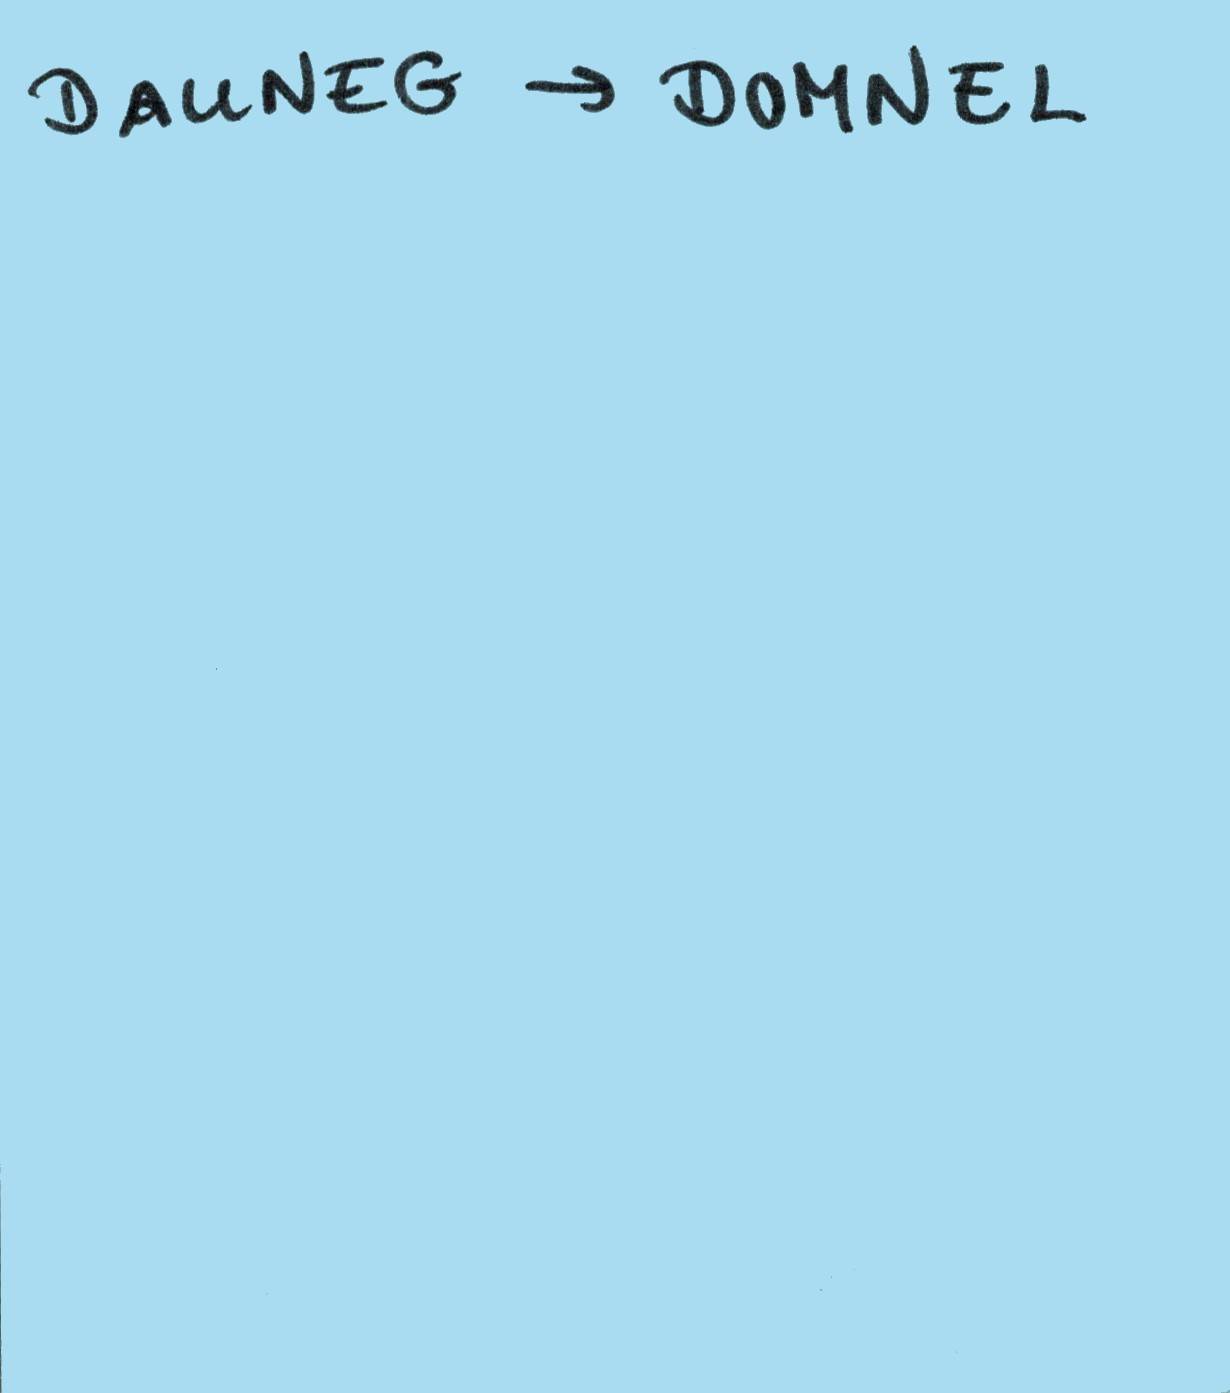 DAUNEG → DOMNEL